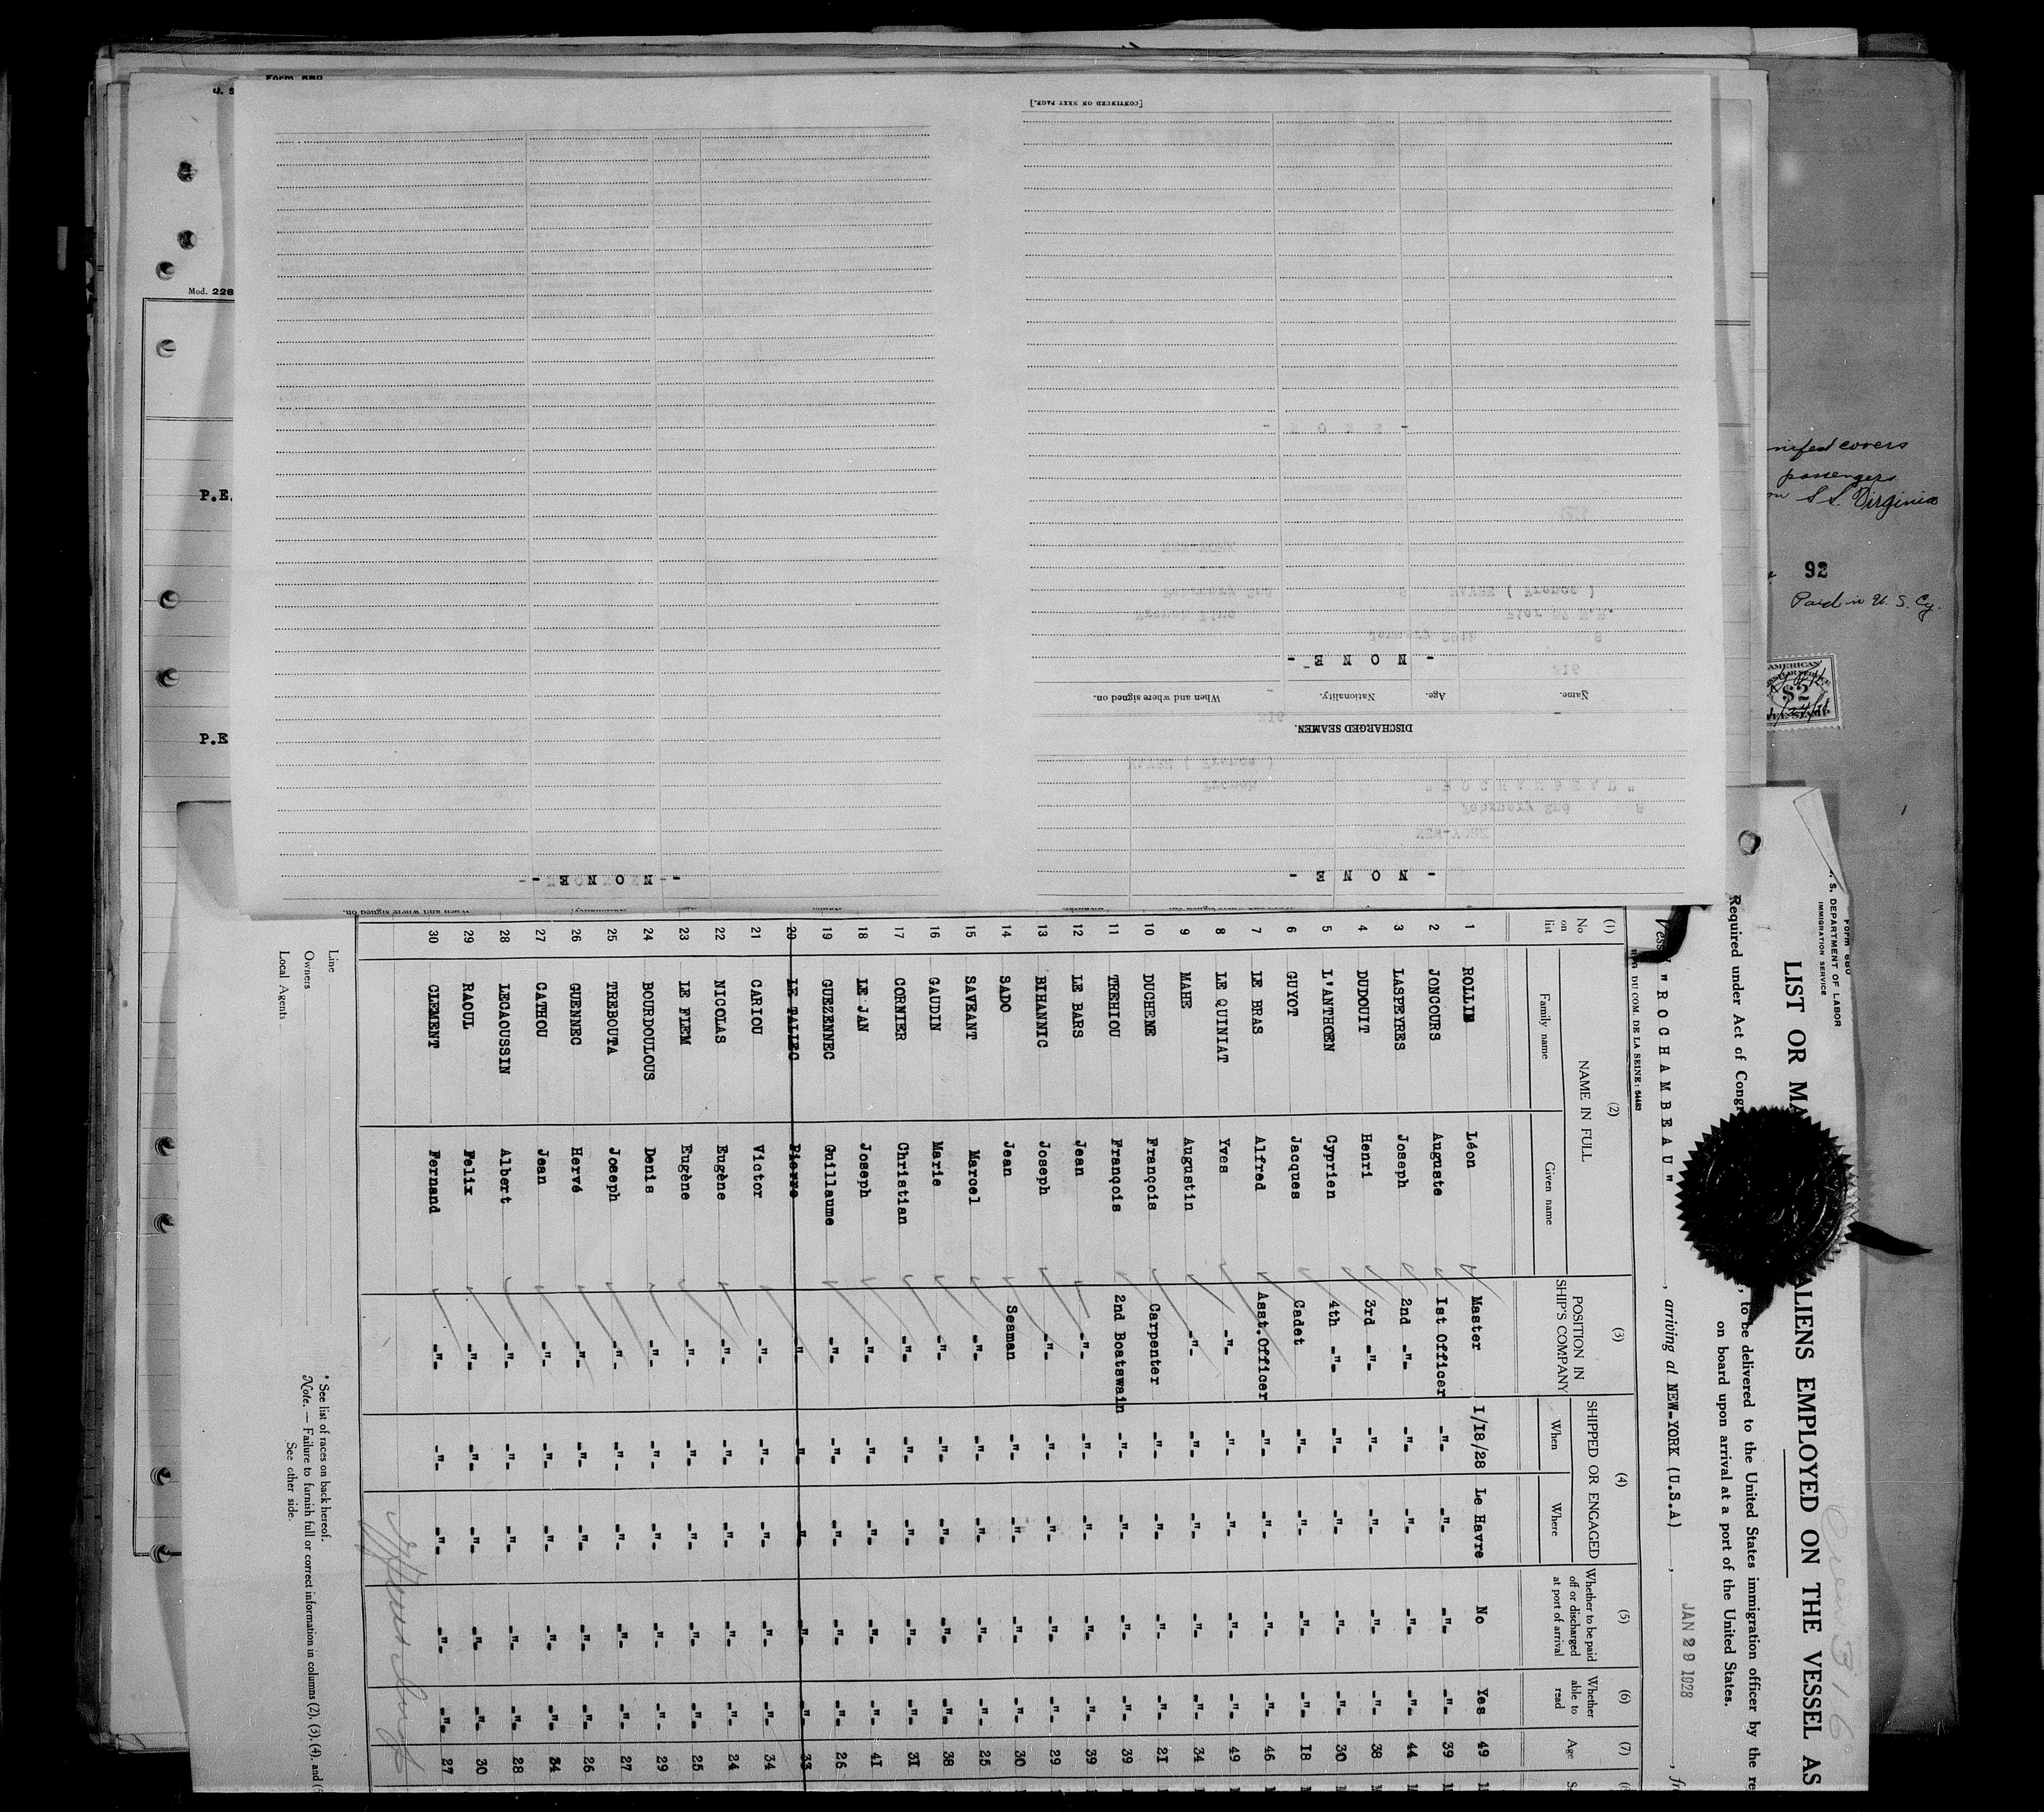 Form 680
U. S. DEPARTMENT OF LABOR
IMMIGRATION SERVICE
LIST OR MA ALIENS EMPLOYED ON THE VESSEL AS
Required under Act of Congr , to be delivered to the United States immigration officer by the re
on board upon arrival at a port of the United States.
Vess "ROCHAMBEAU" , arriving at NEW-YORK (U.S.A) , JAN 29 1928 , fr
REG DU COM. DE LA SEINE: 54483
(1) (2) (3) (4) (5) (6) (7) (8
No on list NAME IN FULL POSITION IN SHIP'S COMPANY SHIPPED OR ENGAGED Whether to be paid off or discharged at port of arrival Whether able to read Age S
Family name Given name When Where
1 ROLLIN Léon Master I/I8/28 Le Havre No Yes 49
2 JONCOURS Auguste Ist Officer -"- -"- -"- -"- 39
3 LASPEYRES Joseph 2nd -"- -"- -"- -"- -"- 44
4 DUDOUIT Henri 3rd -"- -"- -"- -"- -"- 38
5 L'ANTHOEN Cyprien 4th -"- -"- -"- -"- -"- 30
6 GUYOT Jacques Cadet -"- -"- -"- -"- I8
7 LE BRAS Alfred Asst.Officer -"- -"- -"- -"- 46
8 LE QUINIAT Yves -"- -"- -"- -"- -"- 49
9 MAHE Augustin -"- -"- -"- -"- -"- 34
10 DUCHENE François Carpenter -"- -"- -"- -"- 2I
11 TREHIOU François 2nd Boatswain -"- -"- -"- -"- 39
12 LE BARS Jean -"- -"- -"- -"- -"- 39
13 BIHANNIC Joseph -"- -"- -"- -"- -"- 29
14 SADO Jean Seaman -"- -"- -"- -"- 30
15 SAVEANT Marcel -"- -"- -"- -"- -"- 25
16 GAUDIN Marie -"- -"- -"- -"- -"- 38
17 CORNIER Christian -"- -"- -"- -"- -"- 3I
18 LE JAN Joseph -"- -"- -"- -"- -"- 4I
19 GUEZENNEC Guillaume -"- -"- -"- -"- -"- 26
20 LE TALLEC Pierre -"- -"- -"- -"- -"- 33
21 CARIOU Victor -"- -"- -"- -"- -"- 34
22 NICOLAS Eugène -"- -"- -"- -"- -"- 24
23 LE FLEM Eugène -"- -"- -"- -"- -"- 25
24 BOURDOULOUS Denis -"- -"- -"- -"- -"- 29
25 TREBOUTA Joseph -"- -"- -"- -"- -"- 27
26 GUENNEC Hervé -"- -"- -"- -"- -"- 26
27 CATHOU Jean -"- -"- -"- -"- -"- 34
28 LECAOUSSIN Albert -"- -"- -"- -"- -"- 28
29 RAOUL Felix -"- -"- -"- -"- -"- 30
30 CLEMENT Fernand -"- -"- -"- -"- -"- 27
Line
Owners
Local Agents
* See list of races on back hereof.
Note. — Failure to furnish full or correct information in columns (2), (3), (4), and (5
See other side.
- N O N E -
- N O N E -
DISCHARGED SEAMEN.
Name. Age. Nationality. When and where signed on.
- N O N E -
[CONTINUED ON NEXT PAGE.]
Form 680
U. S
Mod. 228
P.E.
P.E
nifest covers
passengers
on S.S. Virginia
92
Paid in U. S. Cy.
AMERICAN
$2